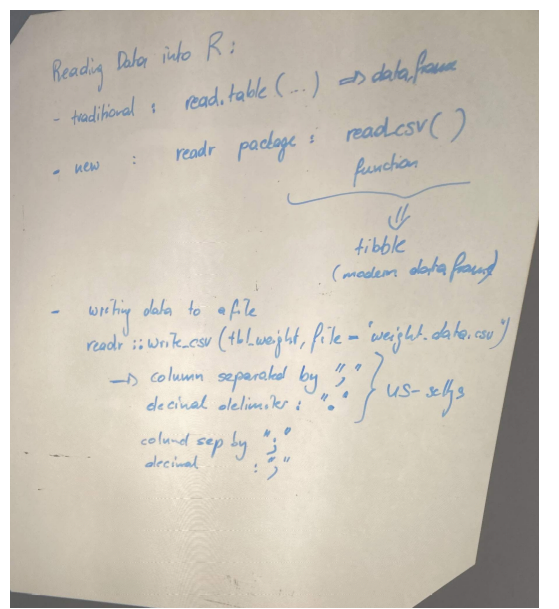 Reading Data into R:
- traditional : read.table(...) ⇒ data.frame
- new : readr package : read_csv( )
function
⇓
tibble
(modern data frame)
- writing data to a file
readr::write_csv(tbl_weight, file = 'weight_data.csv')
→ column separated by ","
decimal delimiter : "."
US-
column sep by ";"
decimal : ","